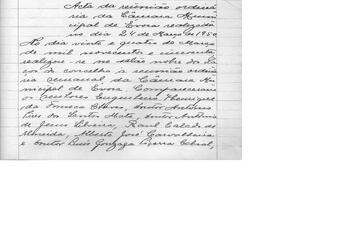 Acta da reunião ordiná
ria da Câmara Muni
cipal de Evora realizada
no dia 24 de Março de 1950
Ao dia vinte e quatro de Março
de mil novecentos e cincoenta
realizou se no salão nobre dos Pa
ços do concelho a reunião ordiná
ria semanal da Câmara Mu
nicipal de Evora. Compareceram
os Senhores Engenheiro Henrique
da Fonseca Chaves, doutor António
Luis dos Santos Mata, doutor António
de Jesus Silveira, Raul Calado de
Almeida, Alberto José Carvalheira
e doutor Luis Gonzaga Cabral,